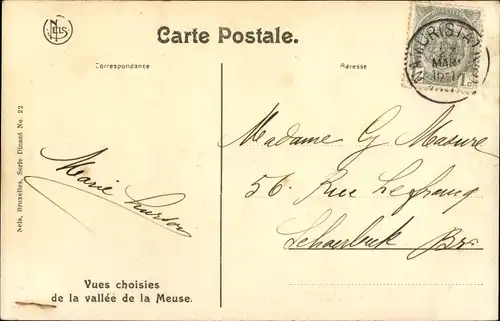 NELS
Carte Postale.
Correspondance
Adresse
MAR
1911
Madame G Masure
56. Rue Lefrancq
Schaerbeek Bx.
Marie
Nels, Bruxelles, Serie Dinant No. 22
Vues choisies
de la vallée de la Meuse.